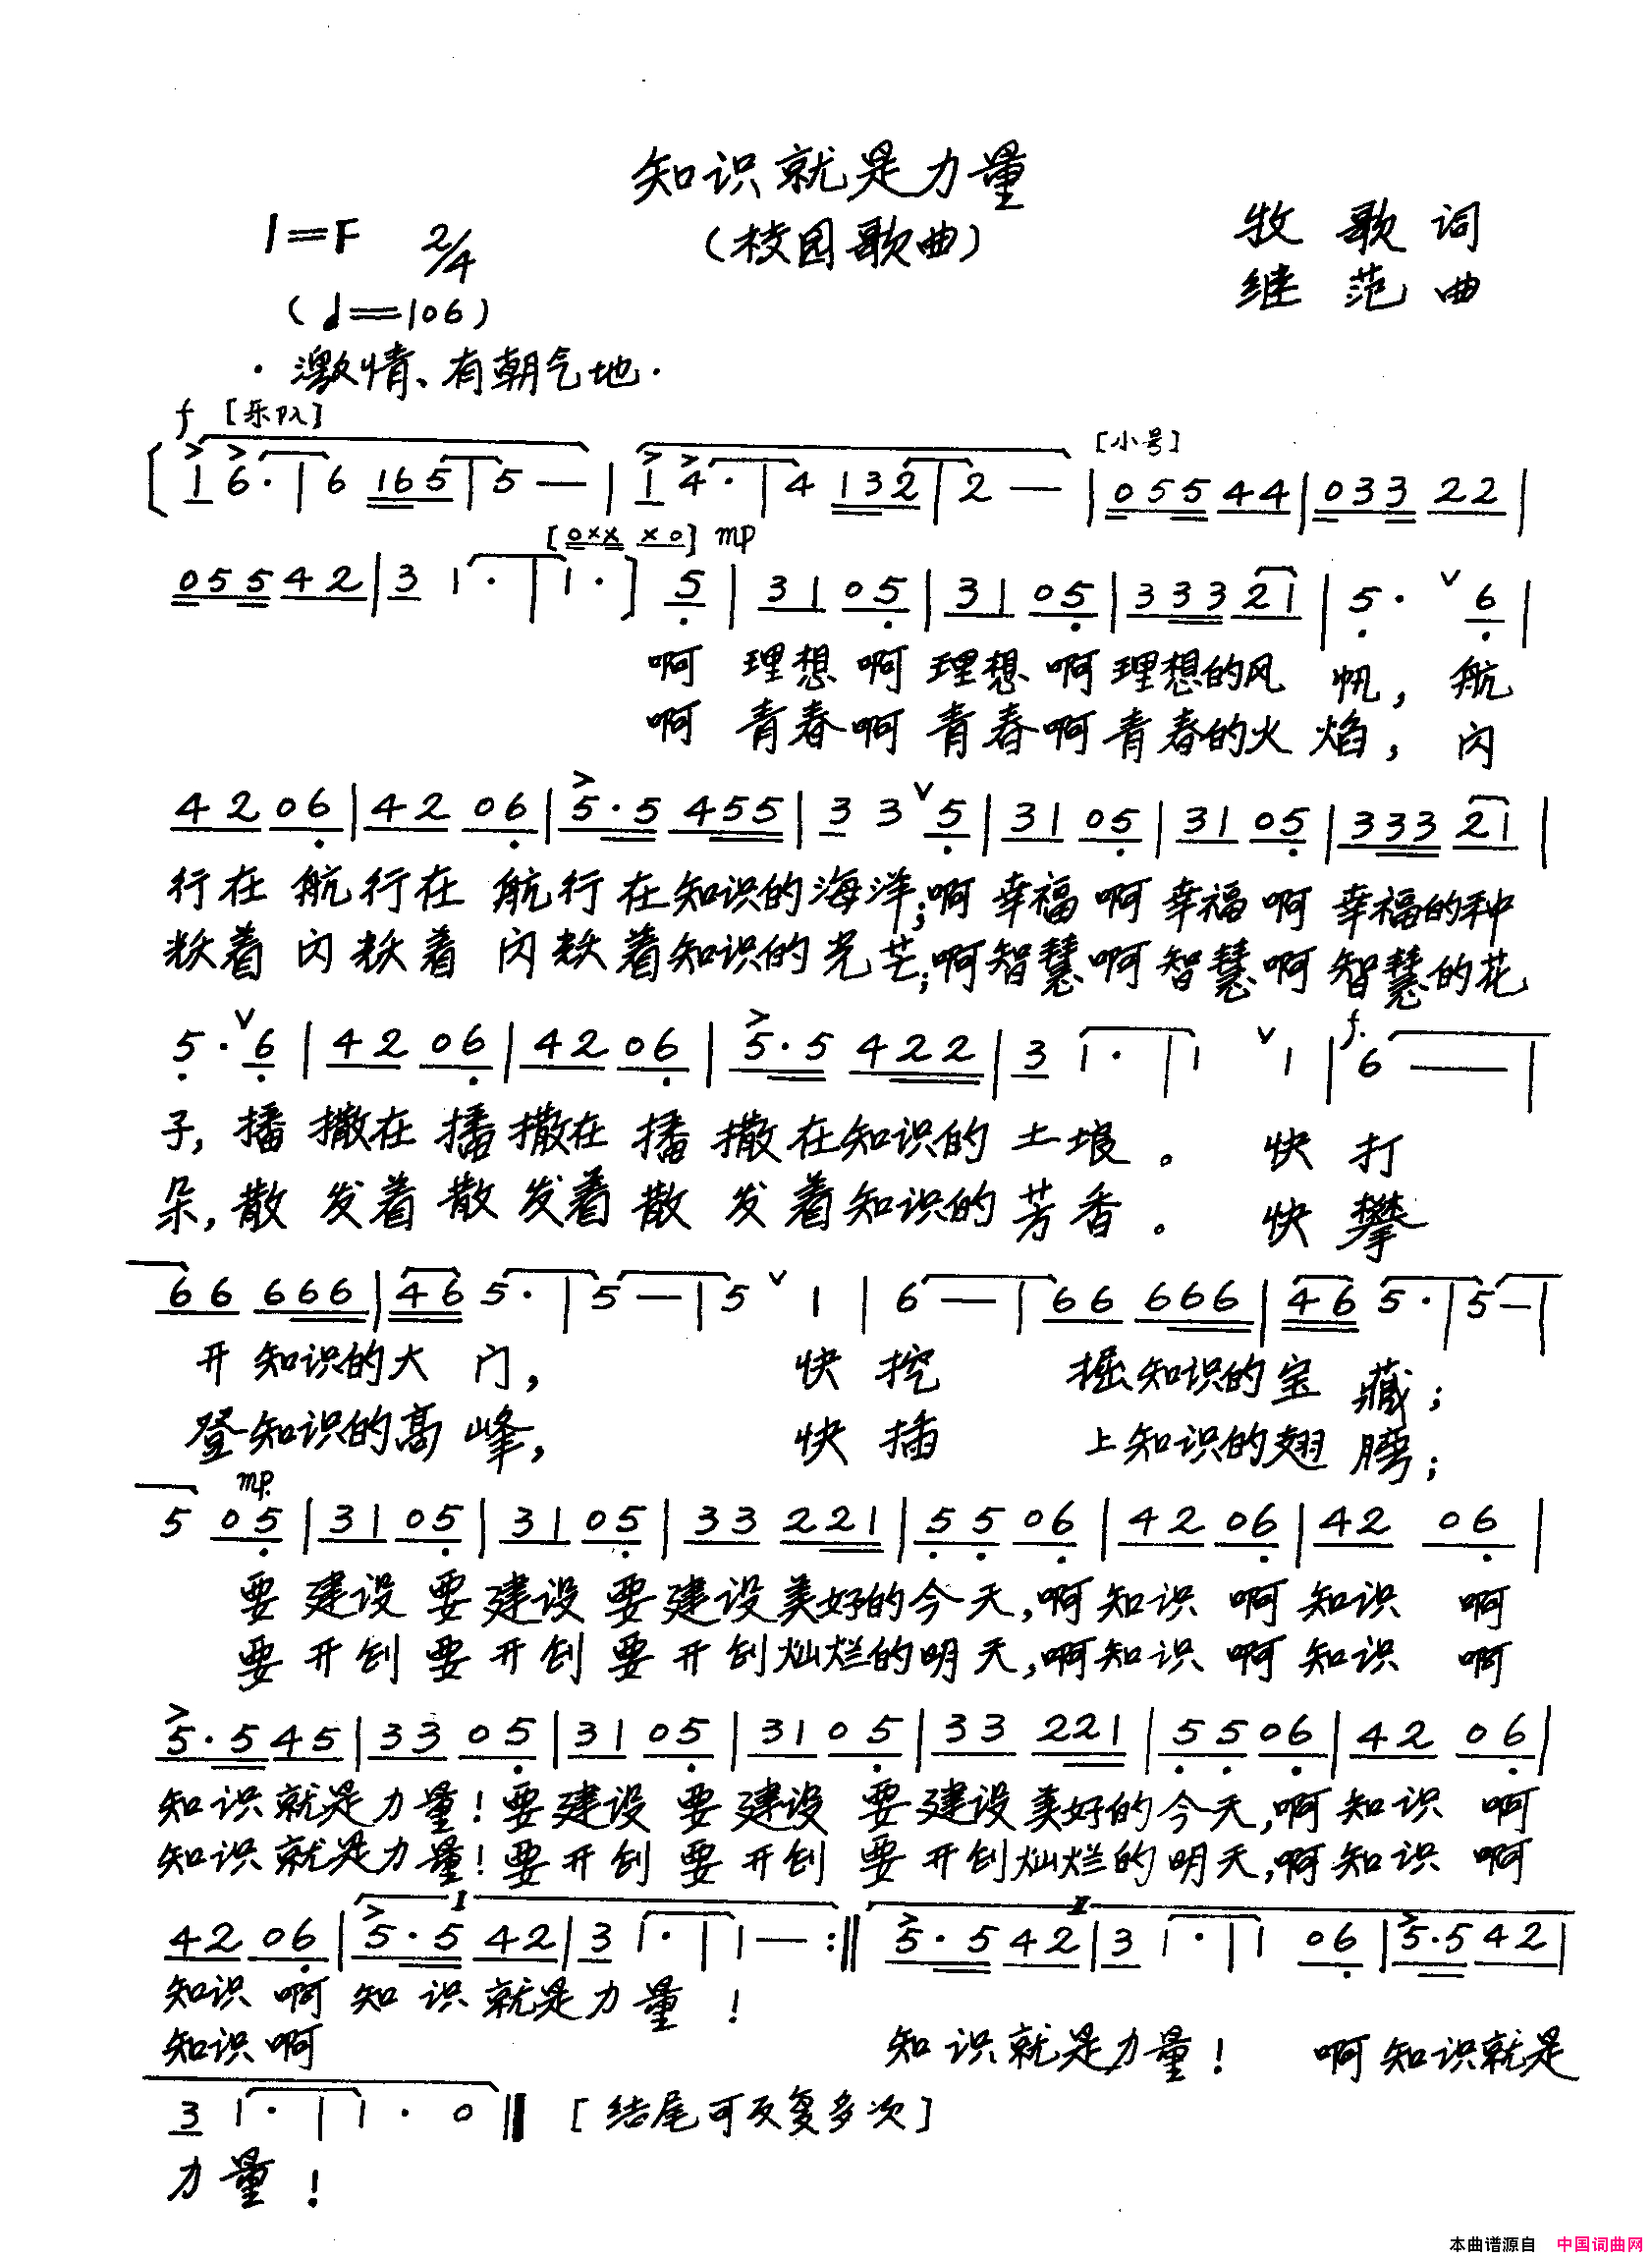 知识就是力量
（校园歌曲）
1=F 2/4
牧歌词
继范曲
（♩=106）
·激情、有朝气地·
f ［乐队］ ［小号］
［ 1 6· | 6 165 | 5 — | 1 4· | 4 132 | 2 — | 055 44 | 033 22 |
［0×× ×0］ mp
055 42 | 3 1· | 1· ］ 5 | 31 05 | 31 05 | 333 21 | 5· 6 |
啊 理想 啊 理想 啊 理想的风 帆, 航
啊 青春 啊 青春 啊 青春的火 焰, 闪
42 06 | 42 06 | 5·5 455 | 3 3 5 | 31 05 | 31 05 | 333 21 |
行在 航行在 航行在知识的海洋;啊 幸福 啊 幸福 啊 幸福的种
耀着 闪耀着 闪耀着知识的光芒;啊 智慧 啊 智慧 啊 智慧的花
5· 6 | 42 06 | 42 06 | 5·5 422 | 3 1· | 1 1 | f 6 — |
子, 播 撒在 播撒在 播 撒在知识的 土壤。 快 打
朵, 散 发着 散发着 散 发着知识的 芳香。 快 攀
66 666 | 46 5· | 5 — | 5 1 | 6 — | 66 666 | 46 5· | 5 — |
开 知识的大 门, 快 挖 掘知识的宝 藏;
登知识的高 峰, 快 插 上知识的翅 膀;
mp
5 05 | 31 05 | 31 05 | 33 221 | 55 06 | 42 06 | 42 06 |
要 建设 要 建设 要 建设美好的今天,啊知识 啊知识 啊
要 开创 要 开创 要 开创灿烂的明天,啊知识 啊知识 啊
5·5 45 | 33 05 | 31 05 | 31 05 | 33 221 | 55 06 | 42 06 |
知识就是力量!要建设 要建设 要建设美好的今天,啊知识 啊
知识就是力量!要开创 要开创 要开创灿烂的明天,啊知识 啊
I II
42 06 | 5·5 42 | 3 1· | 1 — :‖ 5·5 42 | 3 1· | 1 06 | 5·5 42 |
知识 啊 知识就是力量!
知识啊 知识就是力量! 啊知识就是
3 1· | 1· 0 ‖ ［结尾可反复多次］
力量!
本曲谱源自 中国词曲网